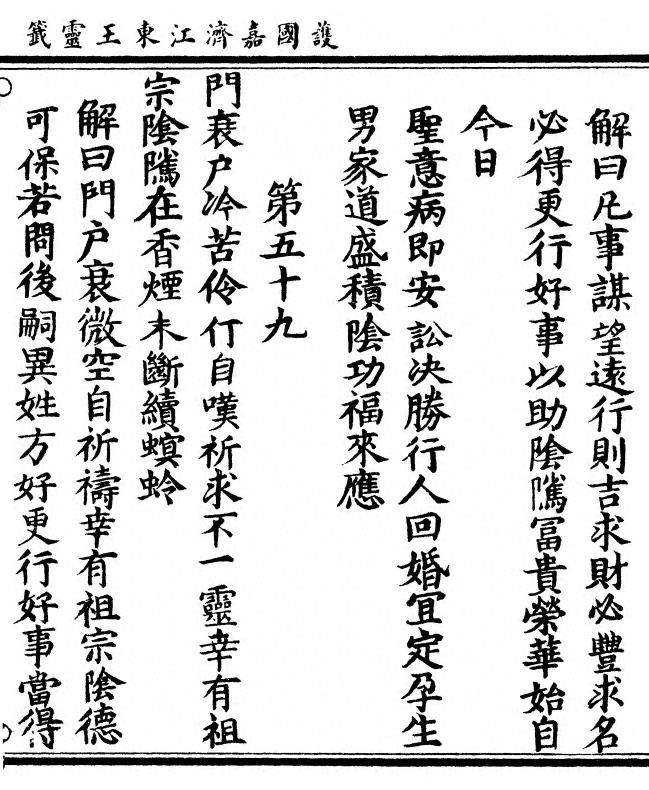 護國嘉濟江東王靈籤
解曰凡事謀望遠行則吉求財必豐求名
必得更行好事以助陰隲冨貴榮華始自
今日
聖意病即安訟决勝行人回婚冝定孕生
男家道盛積陰功福來應
第五十九
門衰户冷苦伶仃自嘆祈求不一靈幸有祖
宗陰隲在香煙未斷續螟蛉
解曰門户衰微空自祈禱幸有祖宗陰德
可保若問後嗣異姓方好更行好事當得